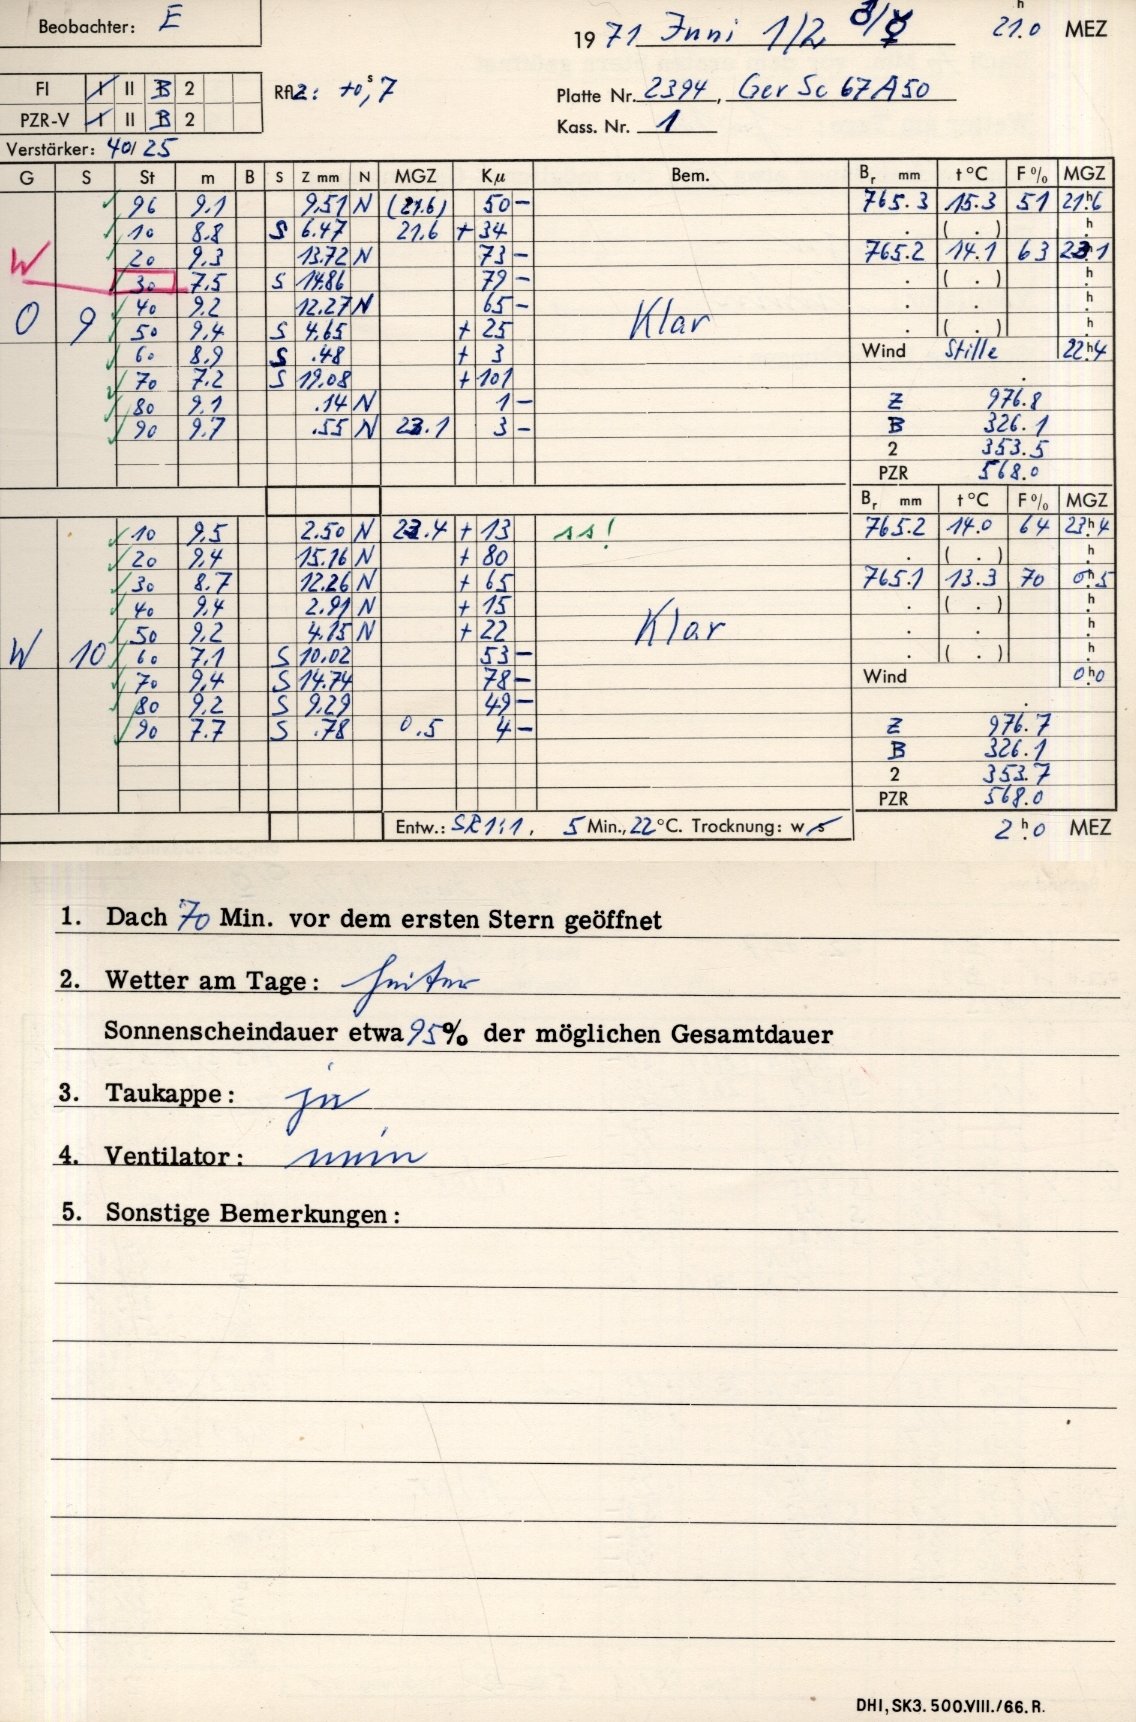 Beobachter: E
1971 Juni 1/2 ♂/☿ 21.0 h MEZ
FI I II B 2 Rfl2: +0,7 s Platte Nr. 2394, Ger Sc 67A50
PZR-V I II B 2 Kass. Nr. 1
Verstärker: 40/25
G S St m B S Z mm N MGZ Kμ Bem. Br mm t °C F% MGZ
96 9.1 9.51 N (21.6) 50 – 765.3 15.3 51 21h.6
10 8.8 S 6.47 21.6 + 34 . ( . ) h
W 20 9.3 13.72 N 73 – 765.2 14.1 63 23h1
30 7.5 S 14.86 79 – . ( . ) h
O 9 40 9.2 12.27 N 65 – Klar . . h
50 9.4 S 4.65 + 25 . ( . ) h
60 8.9 S .48 + 3 Wind Stille 22h.4
70 7.2 S 19.08 + 101
80 9.1 .14 N 1 – Z 976.8
90 9.7 .55 N 23.1 3 – B 326.1
2 353.5
PZR 568.0
Br mm t °C F% MGZ
10 9.5 2.50 N 23.4 + 13 ss! 765.2 14.0 64 23h.4
20 9.4 15.16 N + 80 . ( . ) h
30 8.7 12.26 N + 65 765.1 13.3 70 0h.5
40 9.4 2.91 N + 15 . ( . ) h
50 9.2 4.15 N + 22 Klar . . h
W 10 60 7.1 S 10.02 53 – . ( . ) h
70 9.4 S 14.74 78 – Wind 0h.0
80 9.2 S 9.29 49 –
90 7.7 S .78 0.5 4 – Z 976.7
B 326.1
2 353.7
PZR 568.0
Entw.: SR 1:1, 5 Min., 22°C. Trocknung: w s 2 h.0 MEZ
1. Dach 70 Min. vor dem ersten Stern geöffnet
2. Wetter am Tage: heiter
Sonnenscheindauer etwa 95% der möglichen Gesamtdauer
3. Taukappe: ja
4. Ventilator: nein
5. Sonstige Bemerkungen:
DHI, SK3. 500.VIII./66. R.